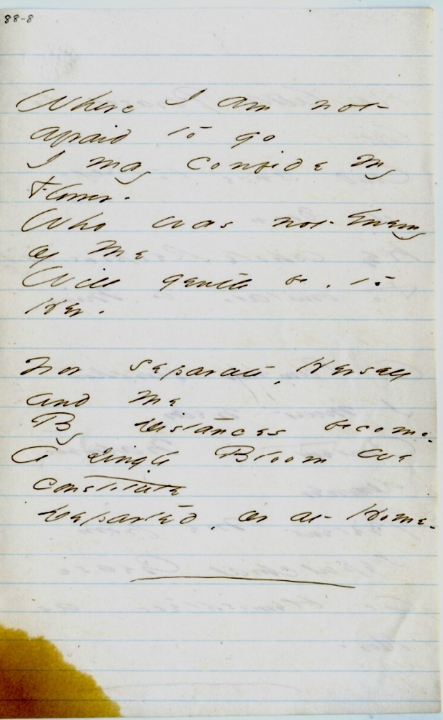 88-8
Where I am not
afraid to go
I may confide my
Flower.
Who was not Enemy
of Me
Will gentle be, to
Her.
Nor separate, Herself
and Me
By Distances become.
A single Bloom we
constitute
Departed, or at Home.